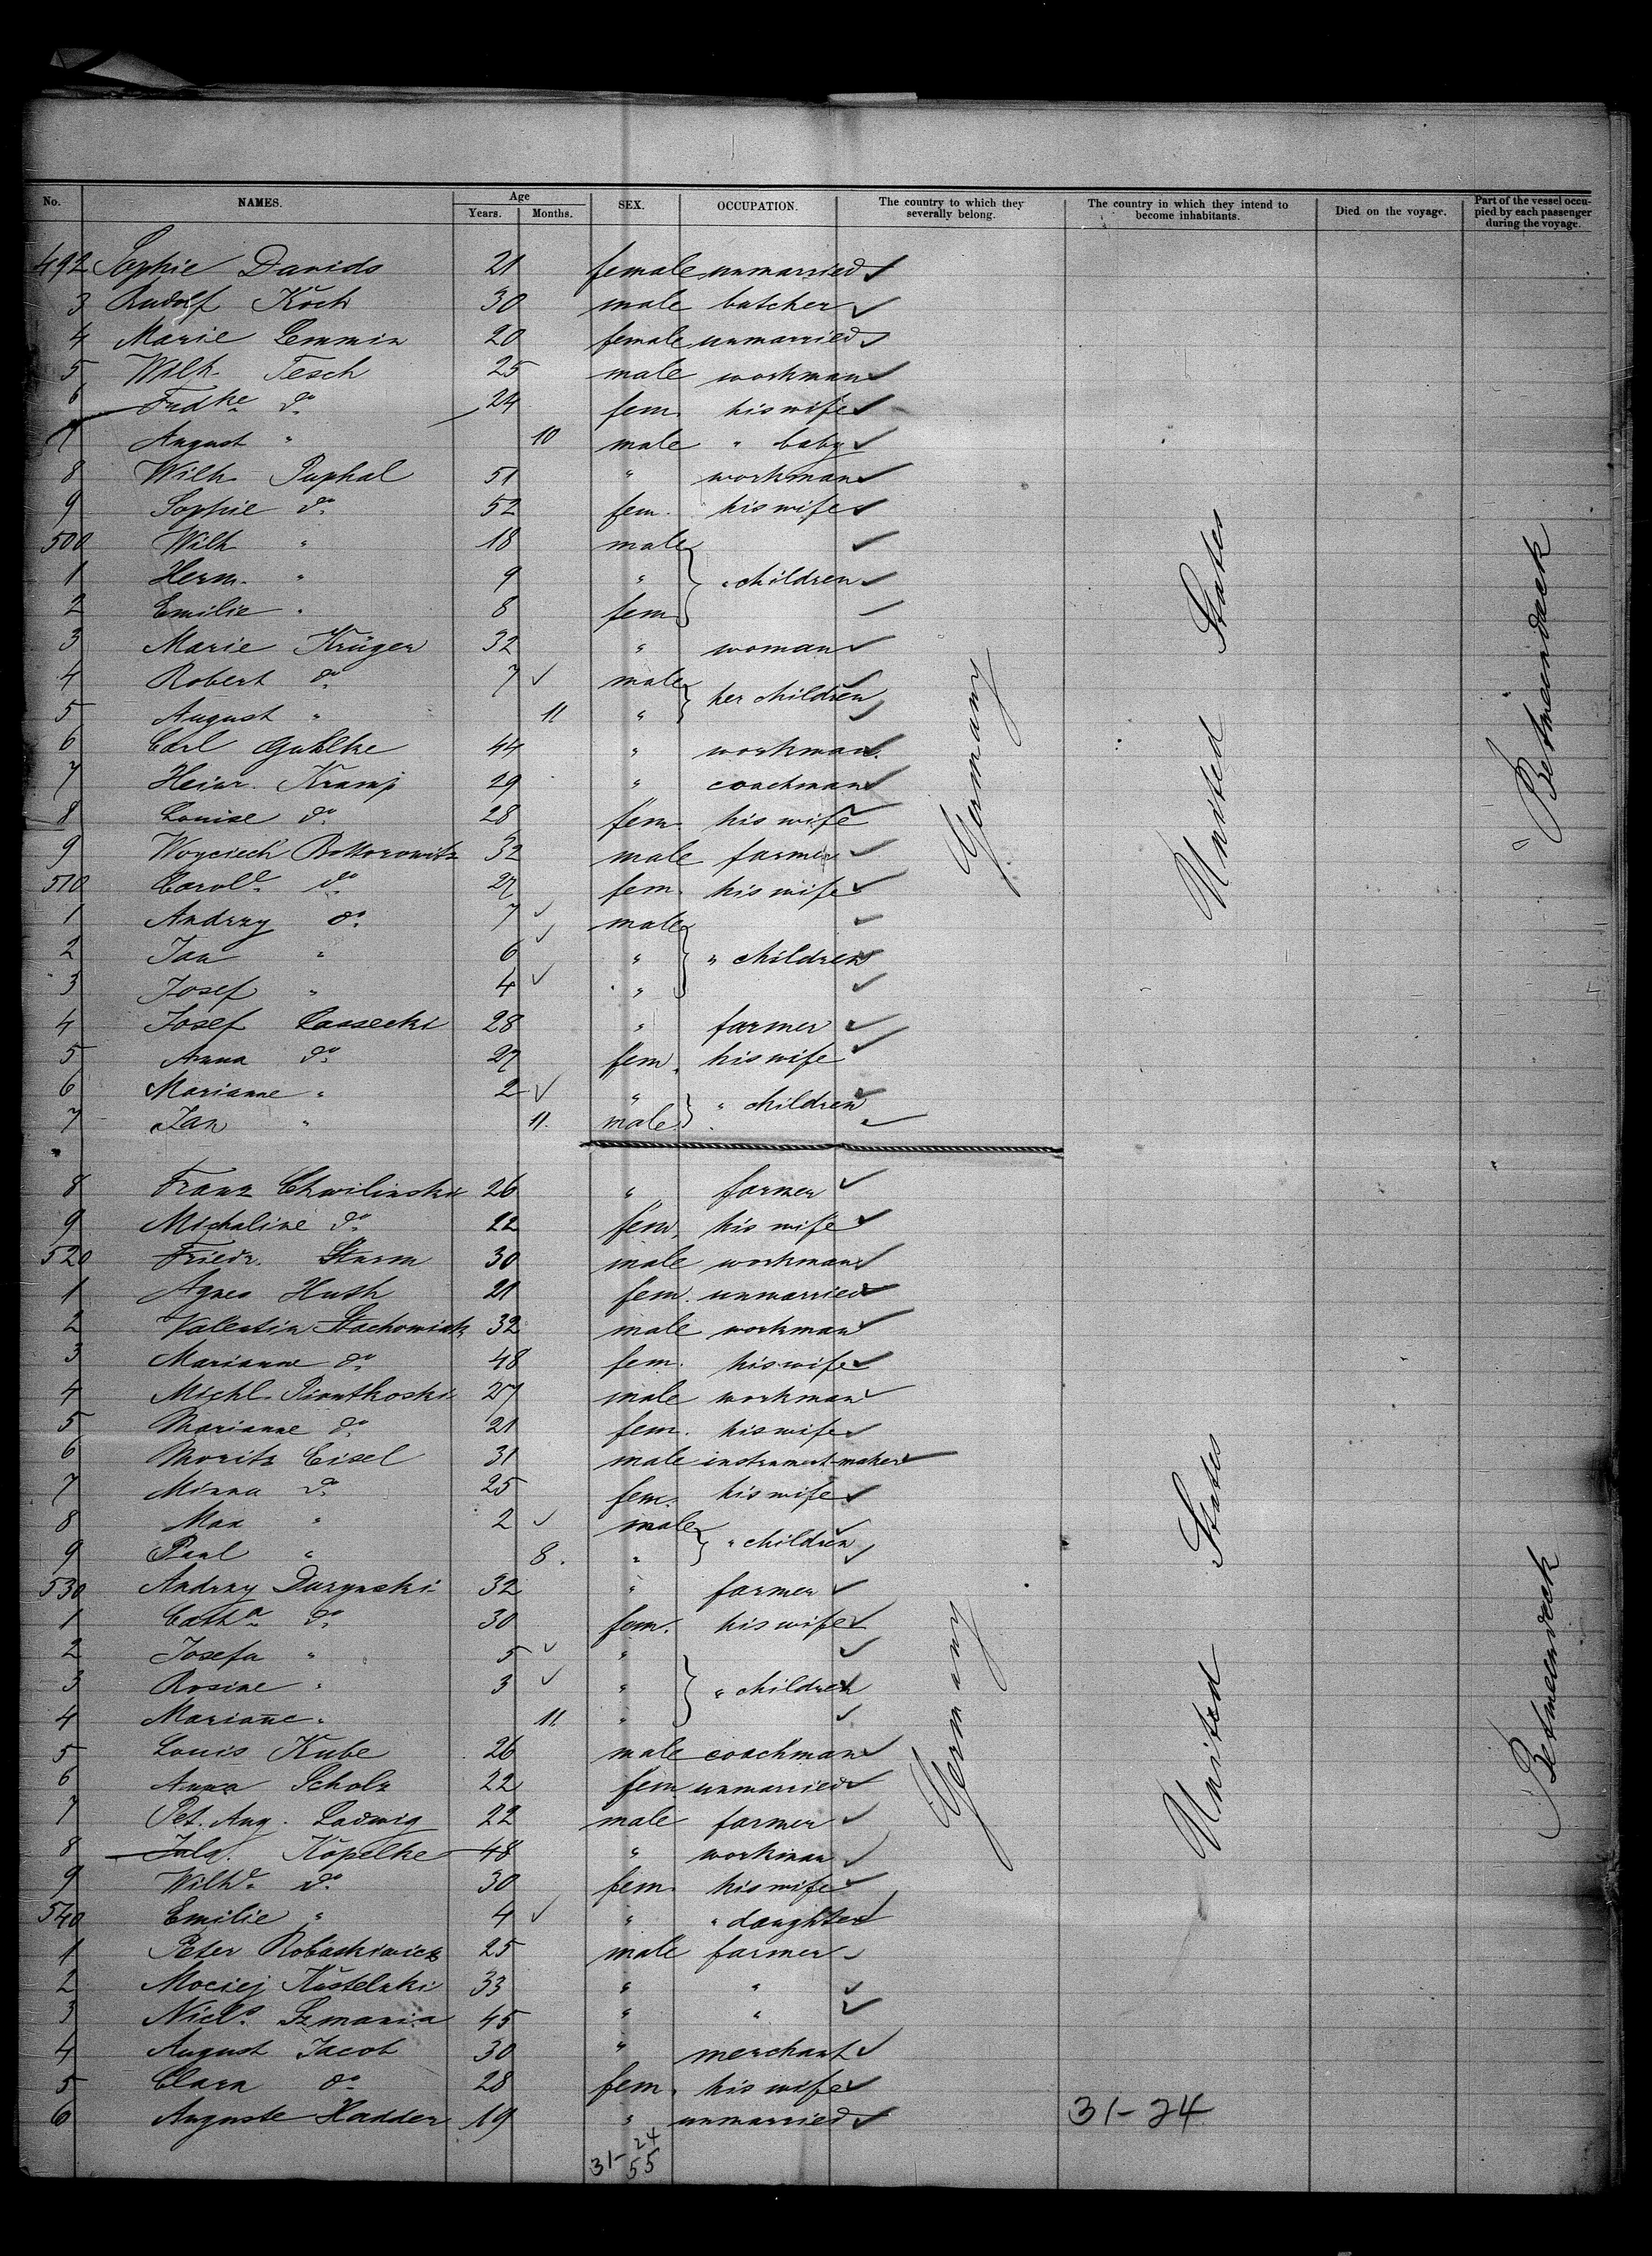 No. NAMES. Age Years. Months. SEX. OCCUPATION. The country to which they severally belong. The country in which they intend to become inhabitants. Died on the voyage. Part of the vessel occupied by each passenger during the voyage.
492 Sophie Davids 21 female unmarried
3 Rudolf Koch 30 male butcher
4 Marie Lemmin 20 female unmarried
5 Wilh. Tesch 25 male workman
6 Frdke do 24 fem. his wife
7 August " 10 male " baby
8 Wilh. Puphal 51 " workman
9 Sophie do 52 fem. his wife
500 Wilh " 18 male
1 Herm. " 9 " " children
2 Emilie " 8 fem
3 Marie Krüger 32 " woman
4 Robert do 7 male her children
5 August " 11 "
6 Carl Guhlke 44 " workman
7 Heinr. Kramp 29 " coachman
8 Louise do 28 fem. his wife
9 Woyciech 32 male farmer
510 Carole do 27 fem. his wife
1 Andrzy do 7 male
2 Jan " 6 " " children
3 Josef " 4 "
4 Josef Lassecki 28 " farmer
5 Anna do 27 fem. his wife
6 Marianne " 2 " " children
7 Jan " 11. male
8 Franz Chwilinski 26 " farmer
9 Michaline do 22 fem. his wife
520 Friedr. Sturm 30 male workman
1 Agnes Huth 21 fem. unmarried
2 Valentin Stachowiak 32 male workman
3 Marianne do 48 fem. his wife
4 Michl. Piontkoski 27 male workman
5 Marianne do 21 fem. his wife
6 Moritz Eisel 31 male instrument-maker
7 Minna do 25 fem. his wife
8 Max " 2 male " children
9 Paul " 8. "
530 Andrzy Duzynski 32 " farmer
1 Catha do 30 fem. his wife
2 Josefa " 5 "
3 Rosine " 3 " " children
4 Mariane " 11 "
5 Louis Kube 26 male coachman
6 Anna Scholz 22 fem. unmarried
7 Pet. Aug. Ladwig 22 male farmer
8 Köpelke 48 " workman
9 Wilhe do 30 fem. his wife
540 Emilie " 4 " " daughter
1 Peter 25 male farmer
2 Maciej 33 " "
3 Nicls. Szmania 45 " "
4 August Jacob 30 " merchant
5 Clara do 28 fem. his wife
6 Auguste Hadder 19 " unmarried
Germany
United States
Betweendeck
Germany
United States
Betweendeck
31-24
31-24
55